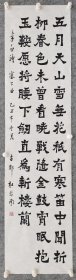 五月天山雪無花祗有寒笛中聞折
柳春色未曾看曉戰隨金鼓宵眠抱
玉鞍愿將腰下劍直為斬樓蘭